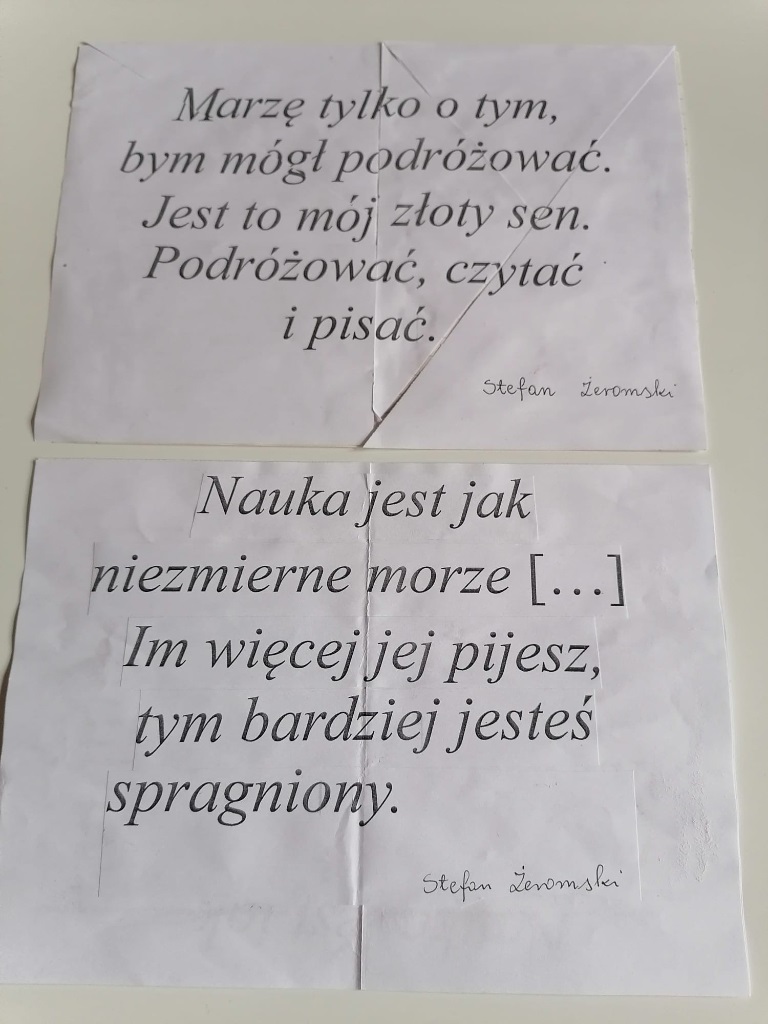 Marzę tylko o tym,
bym mógł podróżować.
Jest to mój złoty sen.
Podróżować, czytać
i pisać.
Stefan Żeromski
Nauka jest jak
niezmierne morze [...]
Im więcej jej pijesz,
tym bardziej jesteś
spragniony.
Stefan Żeromski